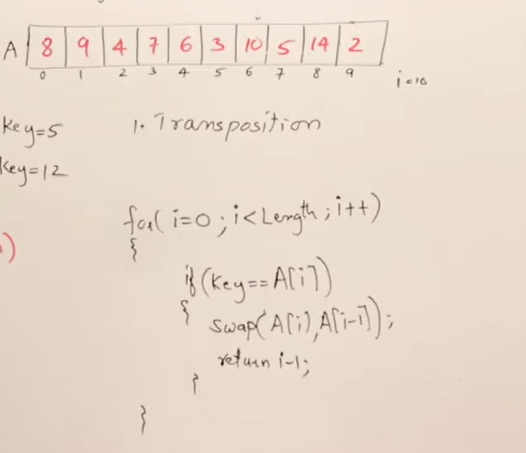 A 8 9 4 7 6 3 10 5 14 2
0 1 2 3 4 5 6 7 8 9 i=10
Key=5 1. Transposition
Key=12
for( i=0 ; i<Length ; i++)
{
)
if (Key==A[i])
{ swap(A[i],A[i-1]);
return i-1;
}
}